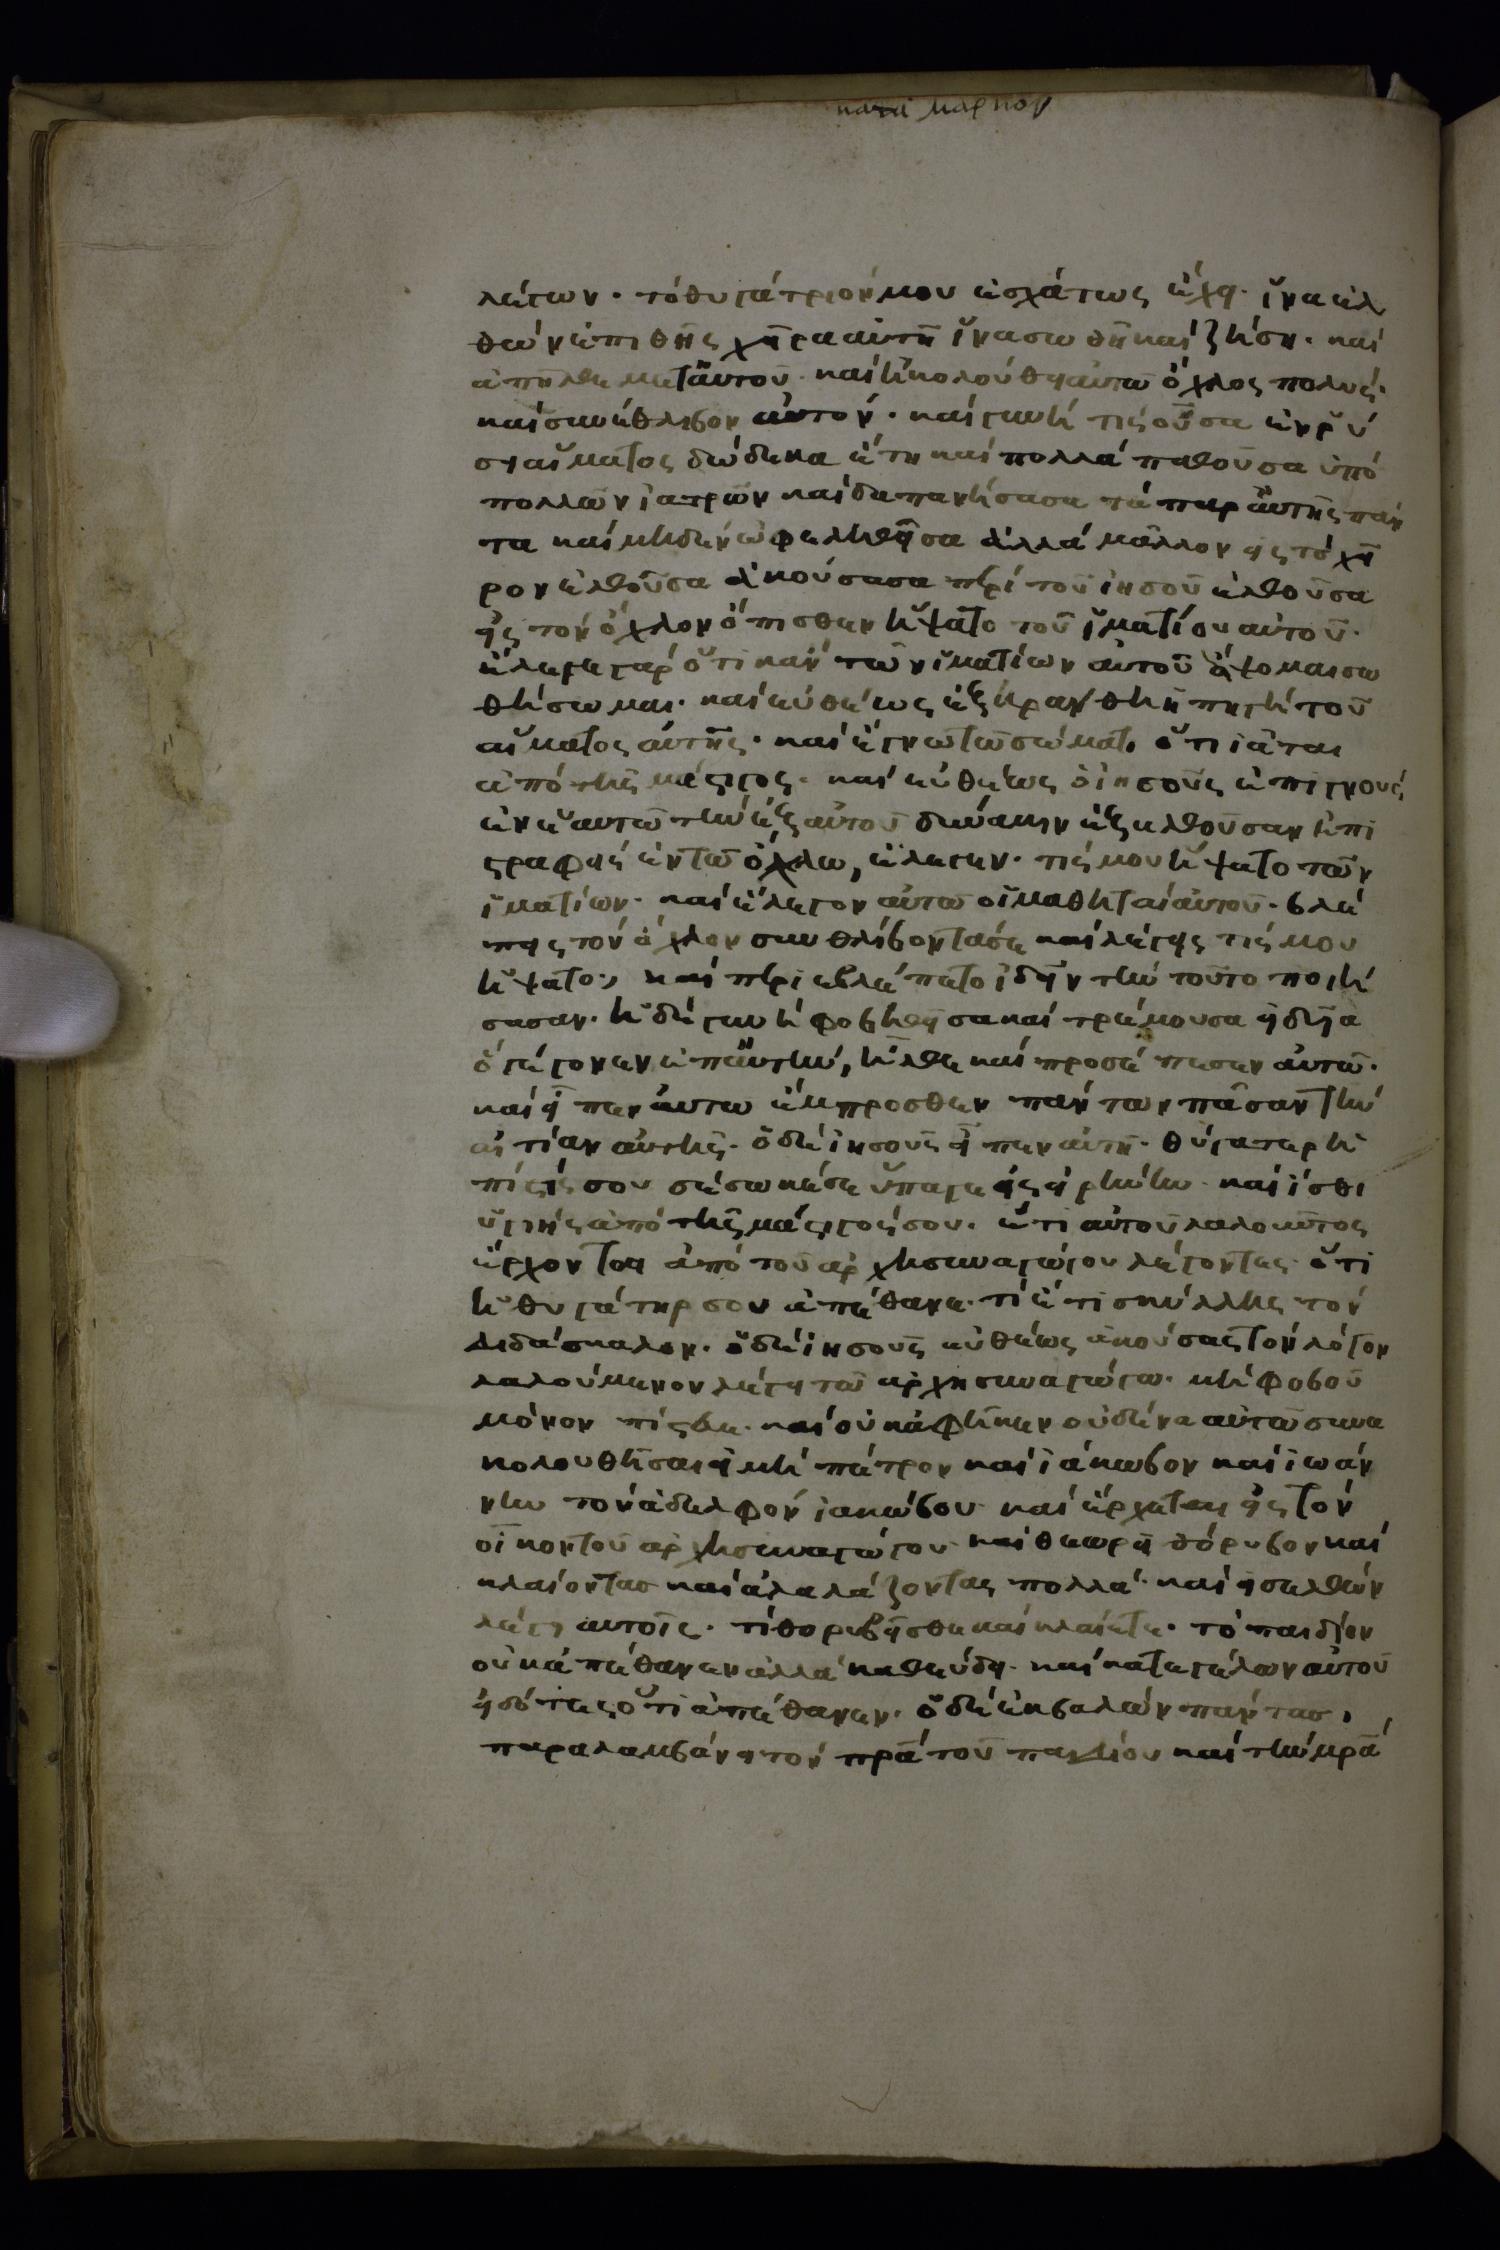 κατὰ μάρκον
λέγων· τὸ θυγάτριόν μου ἐσχάτως ἔχει· ἵνα ἐλ
θὼν ἐπιθῆς χεῖρα αὐτῆ ἵνα σωθῆ καὶ ζήση· καὶ
ἀπῆλθε μετ' αὐτοῦ· καὶ ἠκολούθει αὐτῶ ὄχλος πολύς·
καὶ συνέθλιβον αὐτόν· καὶ γυνή τις οὖσα ἐν ῥύ
σει αἵματος δώδεκα ἔτη καὶ πολλὰ παθοῦσα ὑπὸ
πολλῶν ἰατρῶν καὶ δαπανήσασα τὰ παρ' αὐτῆς πάν
τα καὶ μηδὲν ὠφεληθεῖσα ἀλλὰ μᾶλλον εἰς τὸ χεῖ
ρον ἐλθοῦσα ἀκούσασα περὶ τοῦ ἰησοῦ ἐλθοῦσα
εἰς τὸν ὄχλον ὄπισθεν ἥψατο τοῦ ἱματίου αὐτοῦ·
ἔλεγε γὰρ ὅτι κἂν τῶν ἱματίων αὐτοῦ ἅψομαι σω
θήσωμαι· καὶ εὐθέως ἐξηράνθη ἡ πηγὴ τοῦ
αἵματος αὐτῆς· καὶ ἔγνω τῶ σώματι ὅτι ἰᾶται
ἀπὸ τῆς μάστιγος· καὶ εὐθέως ὁ ἰησοῦς ἐπιγνοὺς
ἐν ἑαυτῶ τὴν ἐξ αὐτοῦ δύναμιν ἐξελθοῦσαν ἐπι
στραφεὶς ἐν τῶ ὄχλω, ἔλεγεν· τίς μου ἥψατο τῶν
ἱματίων· καὶ ἔλεγον αὐτῶ οἱ μαθηταὶ αὐτοῦ· βλέ
πεις τὸν ὄχλον συνθλίβοντά σε καὶ λέγεις τίς μου
ἥψατο; καὶ περιεβλέπετο ἰδεῖν τὴν τοῦτο ποιή
σασαν· ἡ δὲ γυνὴ φοβηθεῖσα καὶ τρέμουσα εἰδυῖα
ὃ γέγονεν ἐπ' αὐτήν, ἦλθε καὶ προσέπεσεν αὐτῶ·
καὶ εἶπεν αὐτῶ ἔμπροσθεν πάντων πᾶσαν τὴν
αἰτίαν αὐτῆς· ὁ δὲ ἰησοῦς εἶπεν αὐτῆ· θύγατερ ἡ
πίστις σου σέσωκέ σε ὕπαγε εἰς εἰρήνην· καὶ ἴσθι
ὑγιὴς ἀπὸ τῆς μάστιγός σου. ἔτι αὐτοῦ λαλοῦντος
ἔρχονται ἀπὸ τοῦ ἀρχησυναγώγου λέγοντες· ὅτι
ἡ θυγάτηρ σου ἀπέθανε· τί ἔτι σκύλλης τὸν
διδάσκαλον· ὁ δὲ ἰησοῦς εὐθέως ἀκούσας τὸν λόγον
λαλούμενον λέγει τῶ ἀρχησυναγώγω· μὴ φοβοῦ
μόνον πίστευε· καὶ οὐκ ἀφῆκεν οὐδένα αὐτῶ συνα
κολουθῆσαι εἰ μὴ πέτρον καὶ ἰάκωβον καὶ ἰωάν
νην τὸν ἀδελφὸν ἰακώβου· καὶ ἔρχεται εἰς τὸν
οἶκον τοῦ ἀρχησυναγώγου καὶ θεωρεῖ θόρυβον καὶ
κλαίοντας καὶ ἀλαλάζοντας πολλά· καὶ εἰσελθὼν
λέγει αὐτοῖς· τί θορυβεῖσθε καὶ κλαίετε· τὸ παιδίον
οὐκ ἀπέθανεν ἀλλὰ καθεύδει· καὶ κατεγέλων αὐτοῦ
εἰδότες ὅτι ἀπέθανεν· ὁ δὲ ἐκβαλὼν πάντας,
παραλαμβάνει τὸν πρα τοῦ παιδίου καὶ τὴν μρα